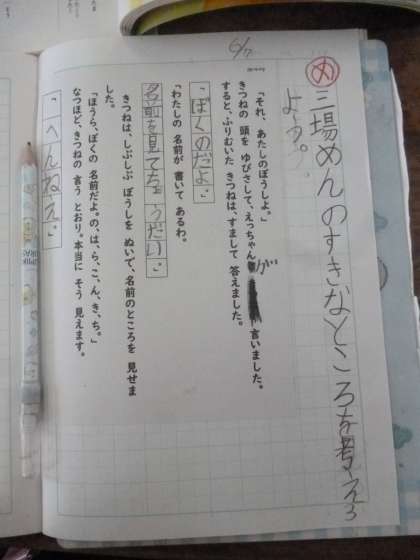 6/7
め 三場めんのすきなところを考え
よう。
「それ、あたしのぼうしよ。」
きつねの 頭を ゆびさして、えっちゃんが 言いました。
すると、ふりむいた きつねは、すまして 答えました。
「ぼくのだよ。」
「わたしの 名前が 書いて あるわ。
名前を見てちょうだい。」
きつねは、しぶしぶ ぼうしを ぬいで、名前のところを 見せま
した。
「ほうら、ぼくの 名前だよ。の、は、ら、こ、ん、き、ち。」
なつほど、きつねの 言う とおり。本当に そう 見えます。
「へんねえ。」